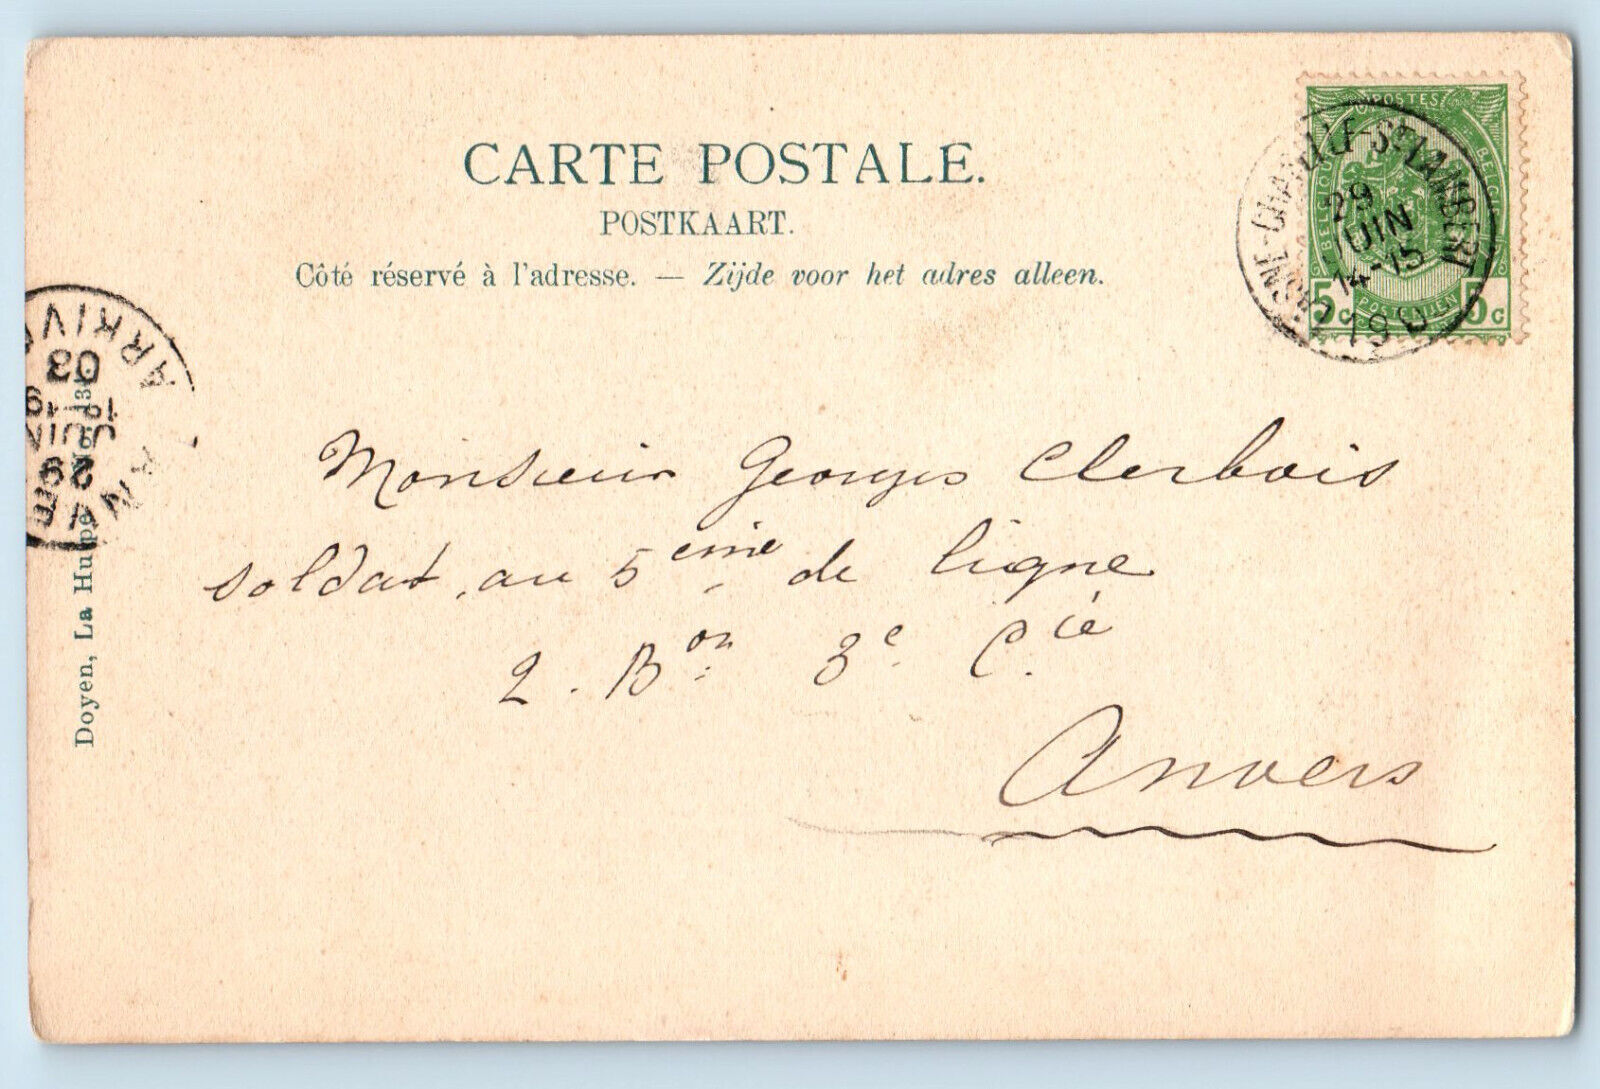 CARTE POSTALE.
POSTKAART.
Côté réservé à l'adresse. — Zijde voor het adres alleen.
POSTES
BELGIQUE
BELGIË
5c 5c
POSTERIJEN
LASNE-CHAPELLE-ST LAMBERT
29
JUIN
14-15
190
ARRIVÉ
03
JUIN
29
Doyen, La Hulpe
Monsieur Georges Clerbois
soldat au 5eme de ligne
2. Bon 3e Cie
Anvers